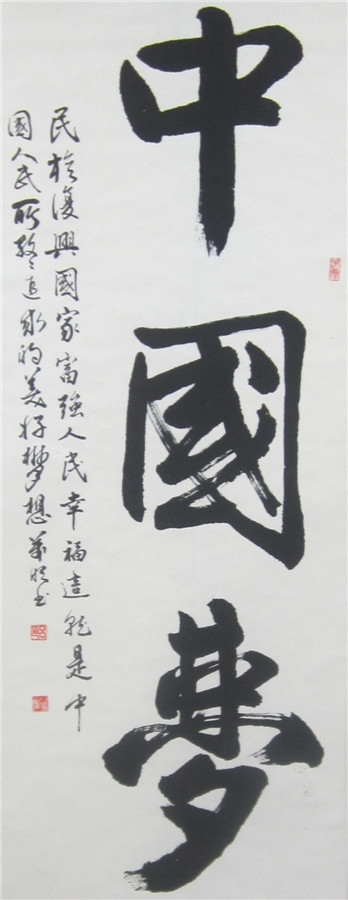 中國夢
民族復興國家富強人民幸福這就是中
國人民所孜孜追求的美好夢想